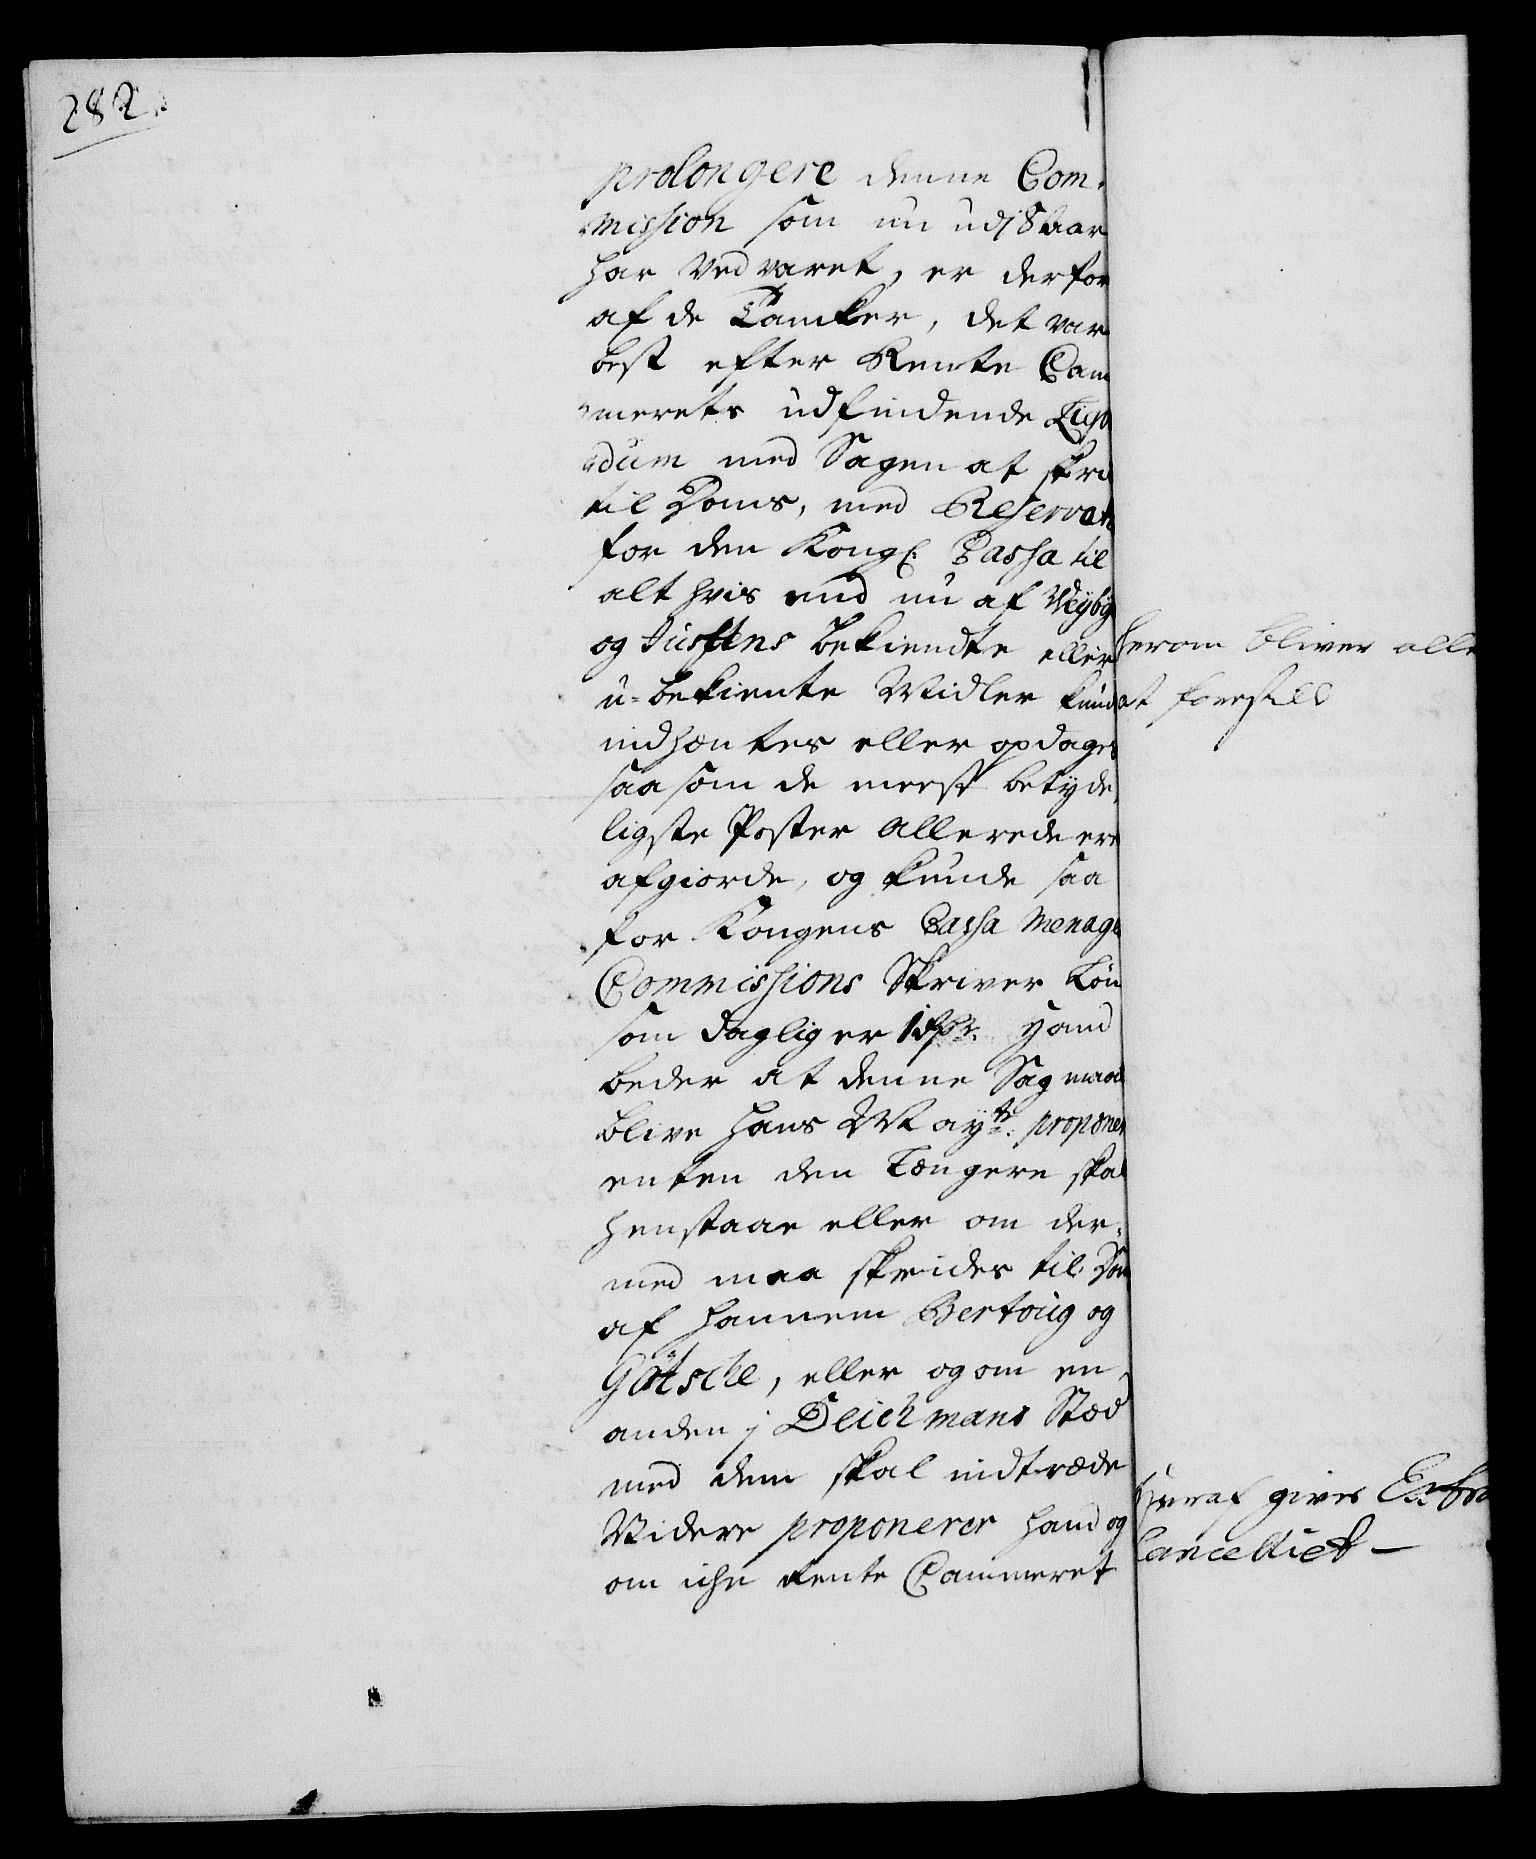 282.
prolongere denne Com-
mission som nu udj 8 Aar
har Vedvaret, er derfor
af de Tancker, det var
best efter Rente Cam
merets udfindende
dum med Sagen at skri
til Doms, med Reservat
for den Kongl: Cassa til
alt hvis end nu af Weyby
og Justens bekiendte eller
u-bekiente Midler kund
indhæntes eller opdages
saasom de meest betyde,
ligste Poster allerede ere
afgiorde, og kunde saa
for Kongens Cassa menage
Commissions Skriver Løn
som daglig er 1 hand
beder at denne Sag maae
blive Hans May.tt: proponer
enten den længere skal
henstaae eller om der-
med maa skrides til Dom
af hannem Bertoug og
Götsche, eller og om en
anden j Deichmans Stæd
med dem skal indtræde
Videre proponerer hand og
om iche Rente Cammeret
herom bliver alle
at forestill
hvoraf gives Extra
Cancelliet —